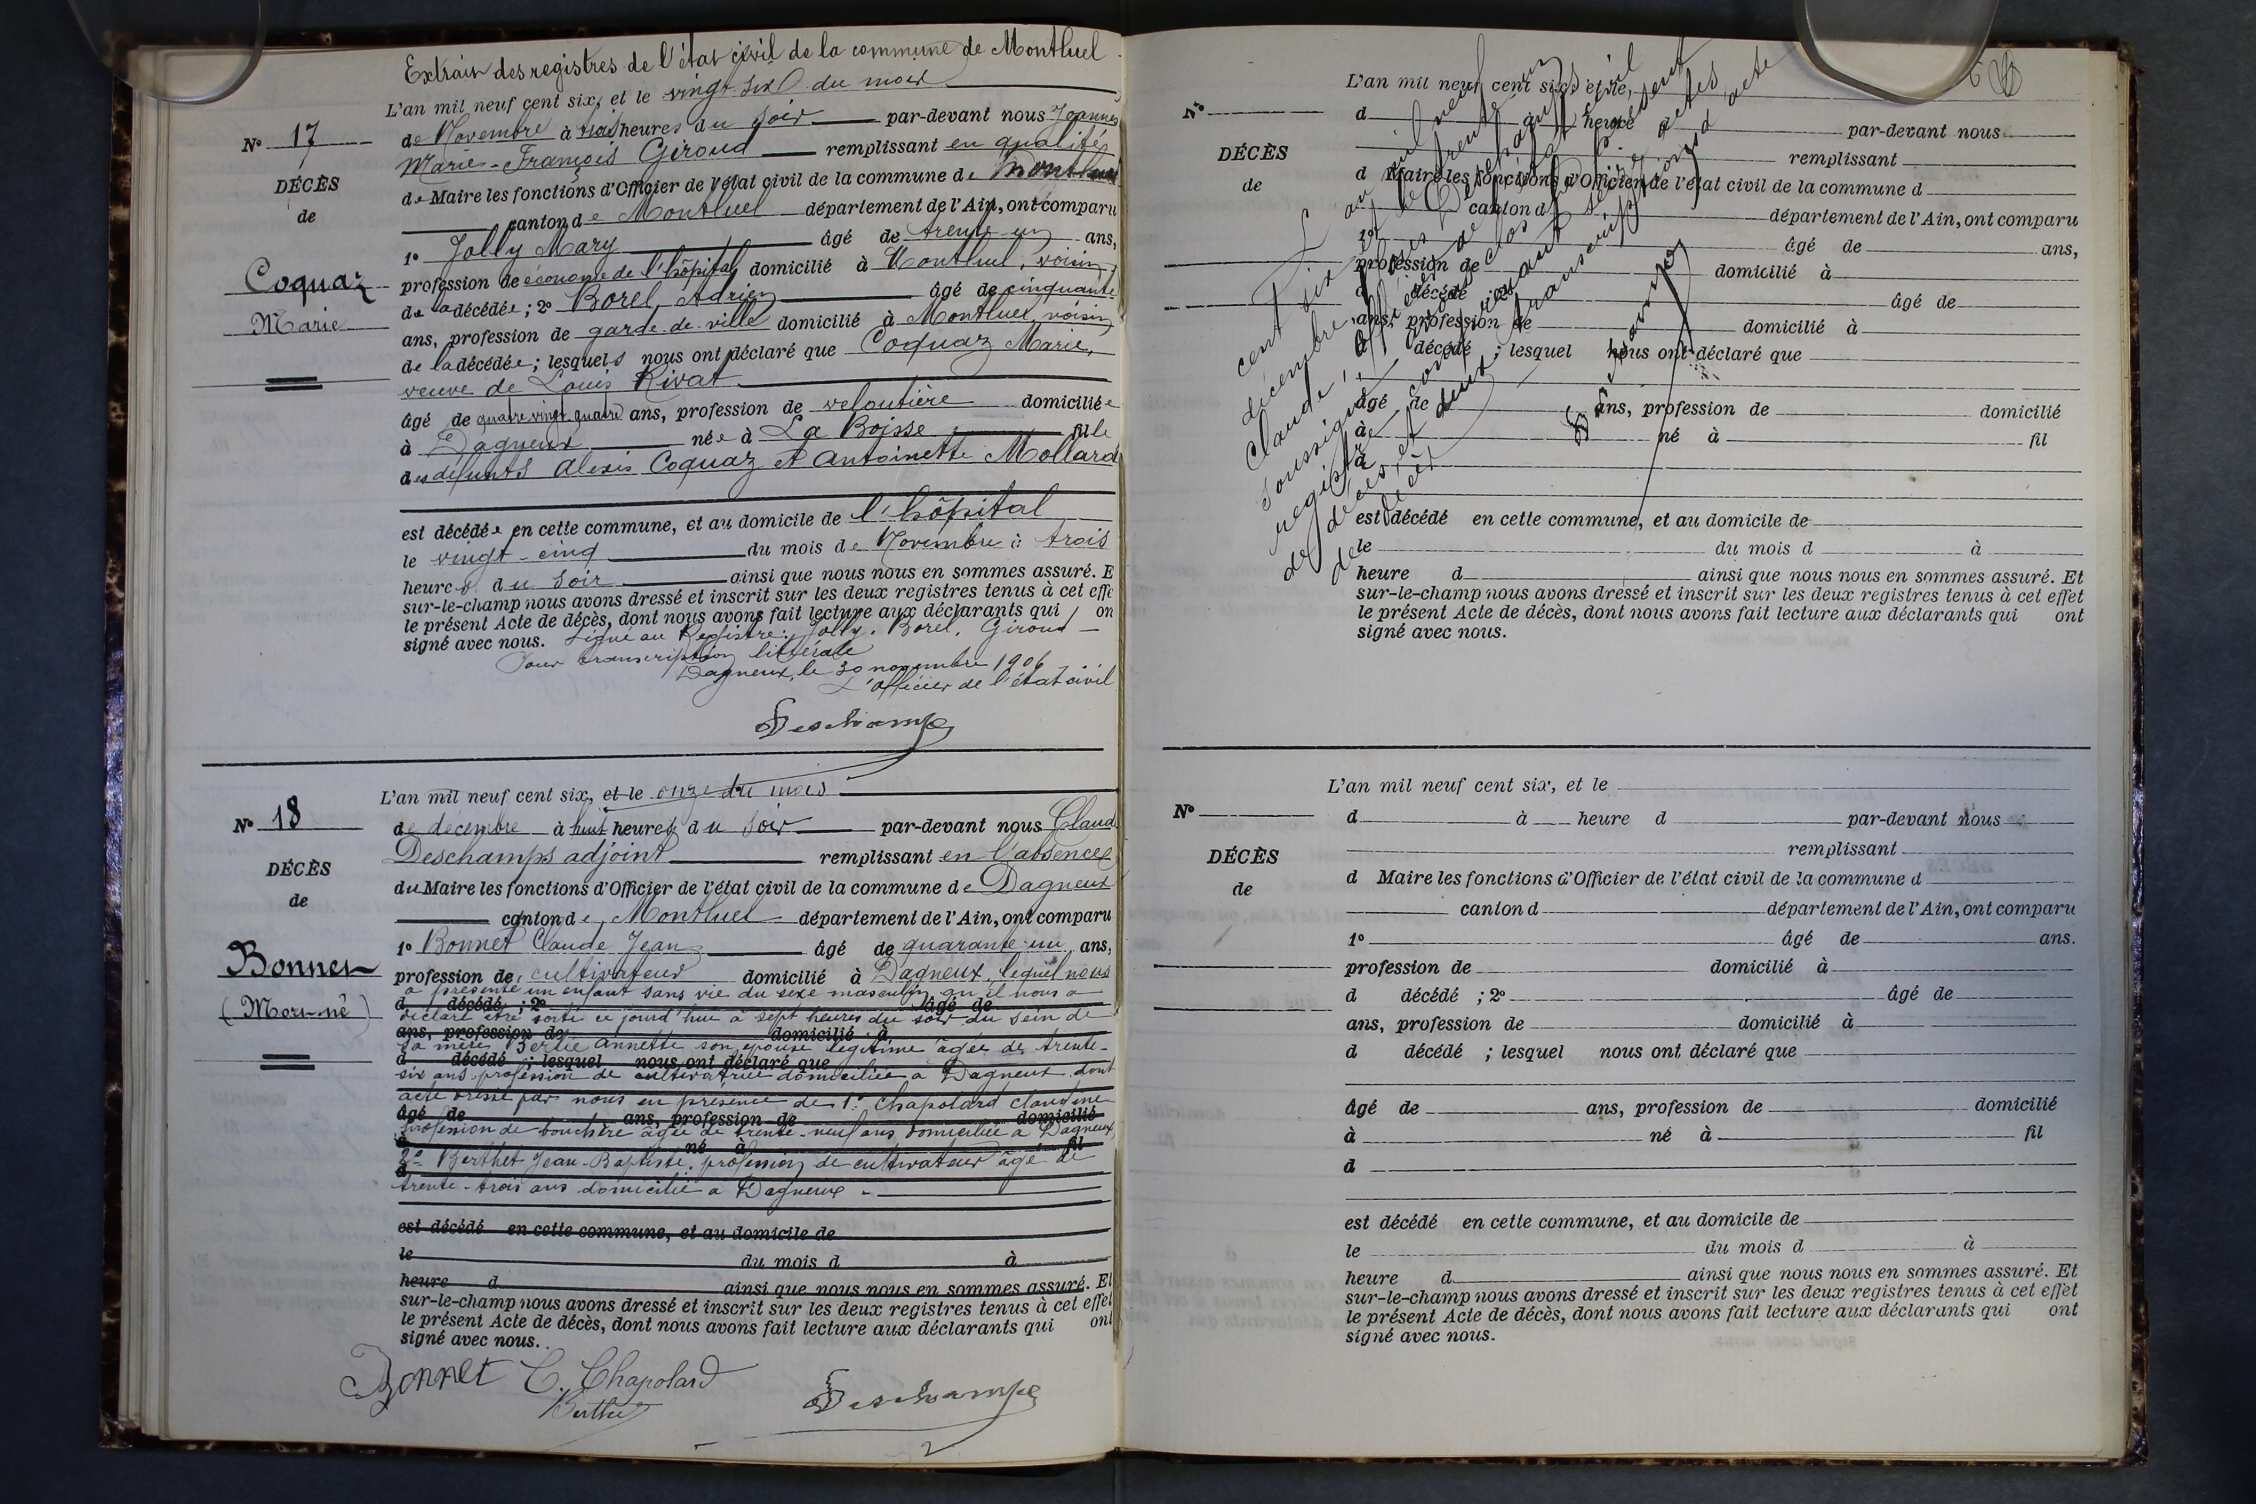 Extrait des registres de l'état civil de la commune de Montluel
L'an mil neuf cent six, et le vingt-six du mois
N° 17
de Novembre à trois heures du soir par-devant nous Joannès
Marie-François Giroud remplissant en qualité
DÉCÈS
de Maire les fonctions d'Officier de l'état civil de la commune de Montluel
de
canton de Montluel département de l'Ain, ont comparu
1° Jolly Mary âgé de trente un ans,
Coquaz
profession de économe de l'hôpital domicilié à Montluel, voisin
de la décédée ; 2° Borel, Adrien âgé de cinquante
Marie
ans, profession de garde de ville domicilié à Montluel, voisin
de la décédée ; lesquels nous ont déclaré que Coquaz Marie,
veuve de Louis Rivat
âgé de quatre vingt quatre ans, profession de veloutière domiciliée
à Dagneux née à La Boisse fille
des défunts Alexis Coquaz et Antoinette Mollard
est décédée en cette commune, et au domicile de l'hôpital
le vingt-cinq du mois de Novembre à trois
heures du soir ainsi que nous nous en sommes assuré. E
sur-le-champ nous avons dressé et inscrit sur les deux registres tenus à cet effe
le présent Acte de décès, dont nous avons fait lecture aux déclarants qui on
signé avec nous. Signé au Registre: Jolly. Borel. Giroud
Pour transcription littérale
Dagneux, le 30 novembre 1906
L'officier de l'état civil
Deschamps
L'an mil neuf cent six, et le onze du mois
N° 18
de decembre à huit heures du soir par-devant nous Claud
Deschamps adjoint remplissant en l'absence
DÉCÈS
du Maire les fonctions d'Officier de l'état civil de la commune de Dagneux
de
canton de Montluel département de l'Ain, ont comparu
1° Bonnet Claude Jean âgé de quarante-un ans,
Bonnet
profession de cultivateur domicilié à Dagneux, lequel nous
a présenté un enfant sans vie du sexe masculin qu'il nous a
d décédé ; 2° âgé de
(Mort-né)
déclaré être sorti ce jourd'hui à sept heures du soir du sein de
ans, profession de domicilié à
sa mère Annette son épouse légitime âgée de trente-
d décédé ; lesquel nous ont déclaré que
six ans profession de cultivatrice domiciliée a Dagneux dont
acte dressé par nous en présence de 1° Chapolard Claudine
âgé de ans, profession de domicilié
profession de bouchère agée de trente-neuf ans domiciliée à Dagneux,
à né à fil
2° Berthet Jean-Baptiste, profession de cultivateur âgé de
d
trente-trois ans domicilié à Dagneux
est décédé en cette commune, et au domicile de
le du mois d à
heure d ainsi que nous nous en sommes assuré. Et
sur-le-champ nous avons dressé et inscrit sur les deux registres tenus à cet effet
le présent Acte de décès, dont nous avons fait lecture aux déclarants qui ont
signé avec nous.
Bonnet C. Chapolard Deschamps
Berthet
L'an mil neuf cent six, et le
N°
d à heure d par-devant nous
remplissant
DÉCÈS
d Maire les fonctions d'Officier de l'état civil de la commune d
de
canton d département de l'Ain, ont comparu
1° âgé de ans,
profession de domicilié à
d décédé ; 2° âgé de
ans, profession de domicilié à
d décédé ; lesquel nous ont déclaré que
âgé de ans, profession de domicilié
à né à fil
d
est décédé en cette commune, et au domicile de
le du mois d à
heure d ainsi que nous nous en sommes assuré. Et
sur-le-champ nous avons dressé et inscrit sur les deux registres tenus à cet effet
le présent Acte de décès, dont nous avons fait lecture aux déclarants qui ont
signé avec nous.
L'an mil neuf
cent six et le trente un
décembre, Deschamps
Claude, officier de l'état civil
soussigné avons clos le présent
registre contenant seize actes
de décès, et deux transcriptions d'acte
de décès
Deschamps
L'an mil neuf cent six, et le
N°
d à heure d par-devant nous
remplissant
DÉCÈS
d Maire les fonctions d'Officier de l'état civil de la commune d
de
canton d département de l'Ain, ont comparu
1° âgé de ans.
profession de domicilié à
d décédé ; 2° âgé de
ans, profession de domicilié à
d décédé ; lesquel nous ont déclaré que
âgé de ans, profession de domicilié
à né à fil
d
est décédé en cette commune, et au domicile de
le du mois d à
heure d ainsi que nous nous en sommes assuré. Et
sur-le-champ nous avons dressé et inscrit sur les deux registres tenus à cet effet
le présent Acte de décès, dont nous avons fait lecture aux déclarants qui ont
signé avec nous.